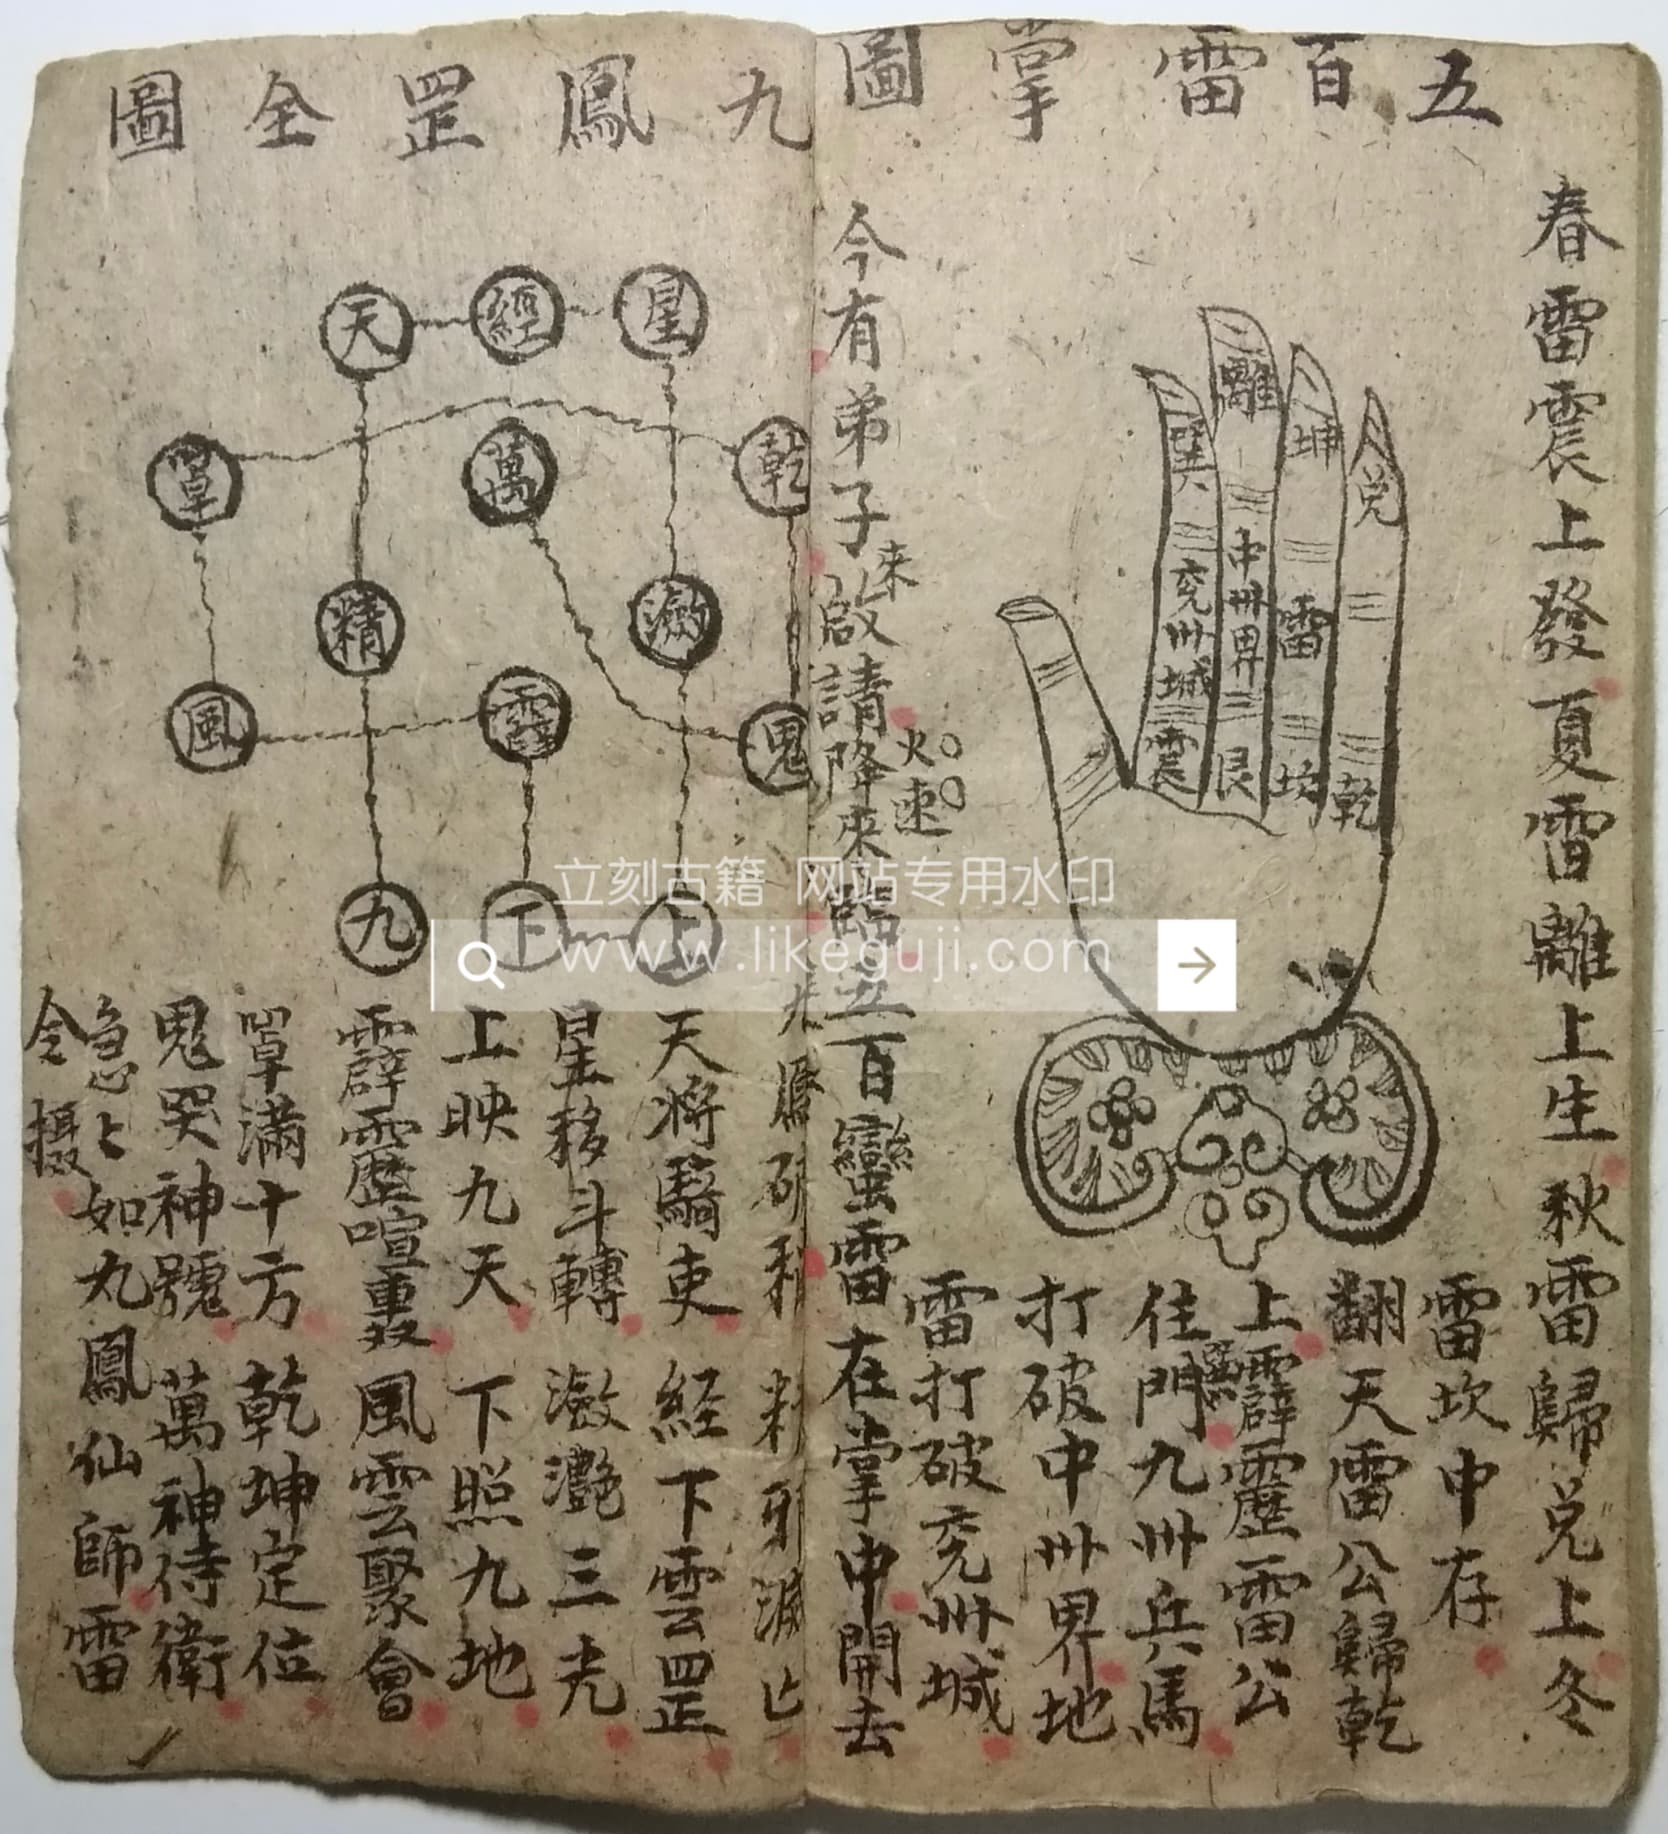 五百雷掌圖
春雷震上發夏雷離上生秋雷歸兌上冬
雷坎中存
翻天雷公歸乾
上霹靂雷公
住門九卅兵馬
打破中卅界地
雷打破兖卅城
今有弟子啟請降來臨五百蠻雷在掌中開去
來
火速
巽
離
坤
兌
兖卅城
中卅界
雷
震
艮
坎
乾
九鳳罡全圖
星
經
天
乾
萬
罩
瀲
精
鬼
霹
風
上
下
九
精邪滅亡
天將騎吏 経下雲罡
星移斗轉 瀲灩三光
上映九天 下照九地
霹靂喧轟 風雲聚會
罩滿十方 乾坤定位
鬼哭神號 萬神侍衛
急々如九鳳仙師雷
令摄
立刻古籍 网站专用水印
www.likeguji.com